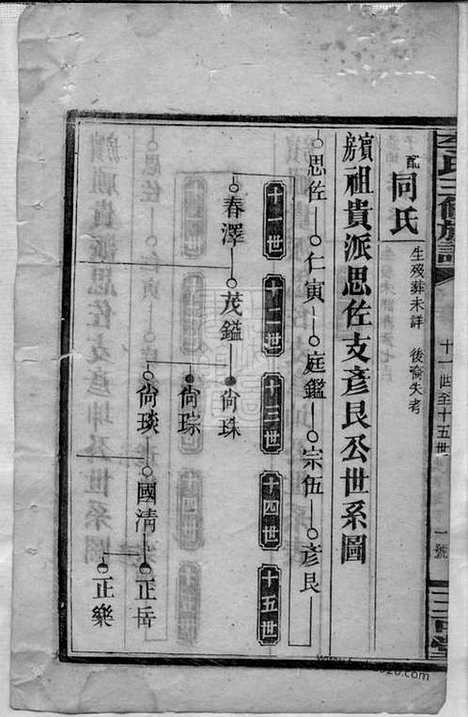 氏三修族譜
十一世至十五世
一號
三
堂
配
同氏
生歿葬未詳
後淪失考
房祖貴派思佐支彥艮公世系圖
思佐
仁寅
庭鑑
宗伍
彥艮
十一世
十二世
十三世
十四世
十五世
春澤
茂鎰
尙珠
尙琮
尙琰
國清
正岳
正樂